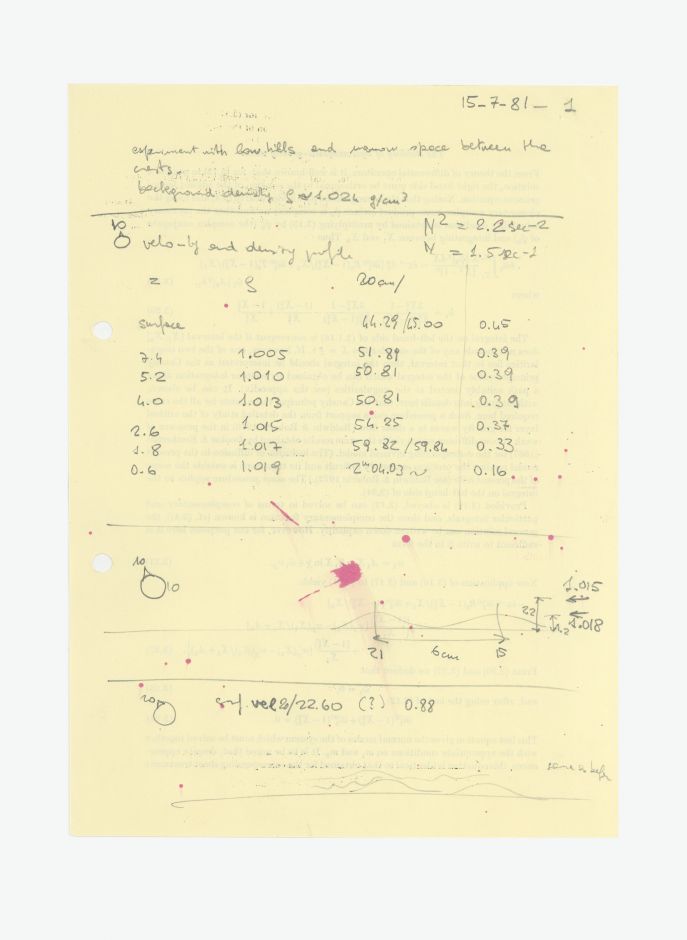 15-7-81- 1
experiment with low hills and narrow space between the
crests.
background density ρ ≈ 1.024 g/cm³
10 N² = 2.2 sec-2
velocity and density profile N = 1.5 sec-1
z ρ 20cm/
surface 44.29/45.00 0.45
7.4 1.005 51.89 0.39
5.2 1.010 50.81 0.39
4.0 1.013 50.81 0.39
2.6 1.015 54.25 0.37
1.8 1.017 59.82/59.84 0.33
0.6 1.019 2ᵐ04.03 ~ 0.16
10 10
1.015
22
1.2 1.018
21 6cm 15
20 surf. vel 2/22.60 (?) 0.88
same as before